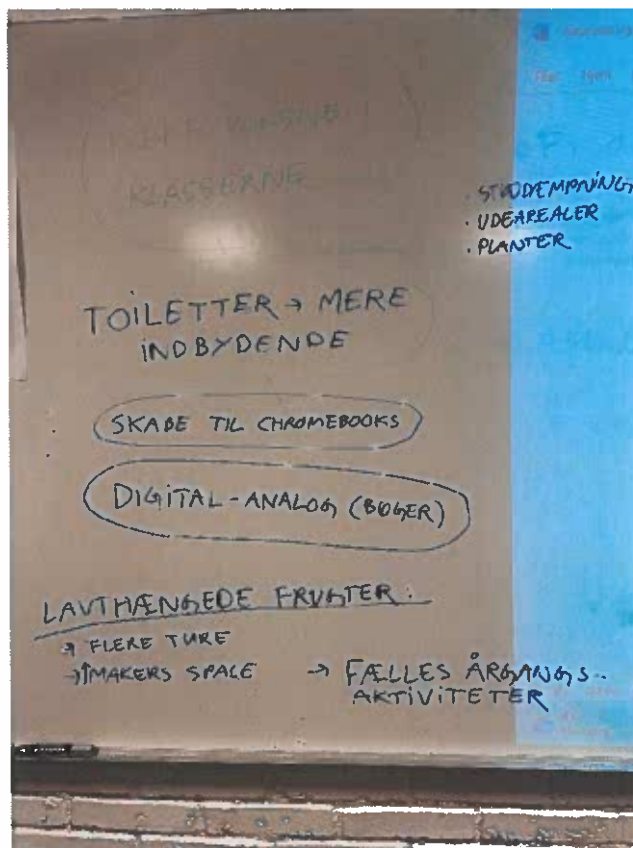 KLASSERNE
· STØJDÆMPNING
· UDEAREALER
· PLANTER
TOILETTER → MERE
INDBYDENDE
SKABE TIL CHROMEBOOKS
DIGITAL-ANALOG (BØGER)
LAVTHÆNGEDE FRUGTER.
→ FLERE TURE
→ ↑MAKERS SPACE → FÆLLES ÅRGANGS..
AKTIVITETER